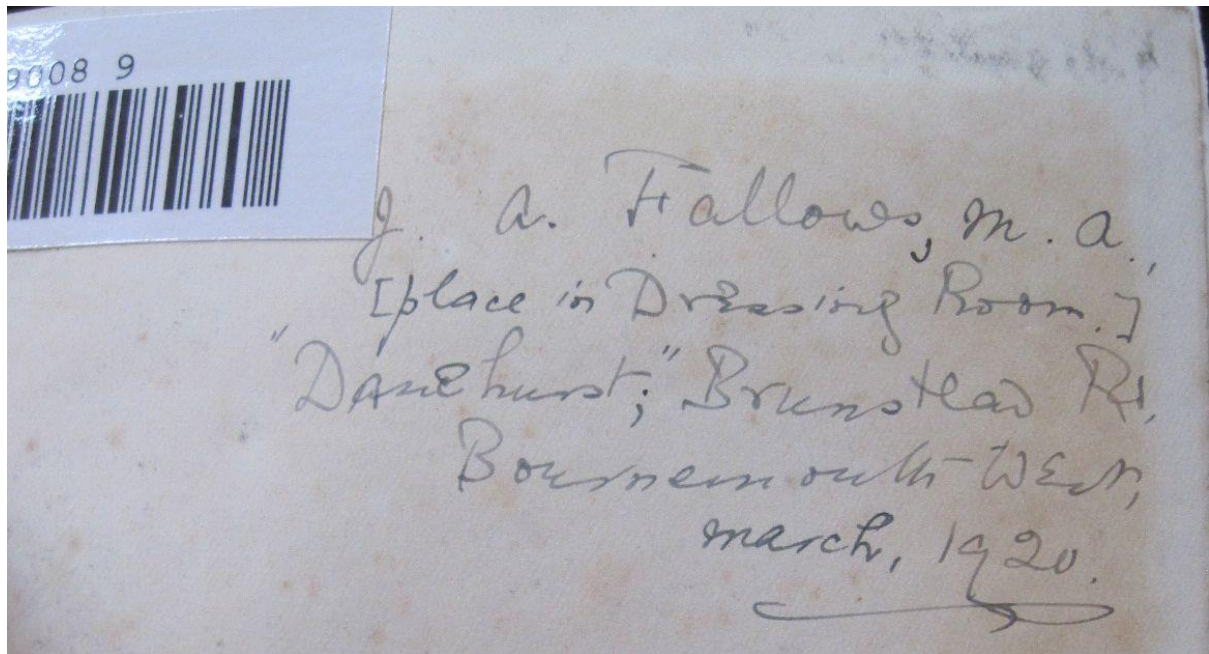 9008 9
J. A. Fallows, M. A.,
[place in Dressing Room.]
"Danehurst;" Brunstead Rd,
Bournemouth West,
March, 1920.